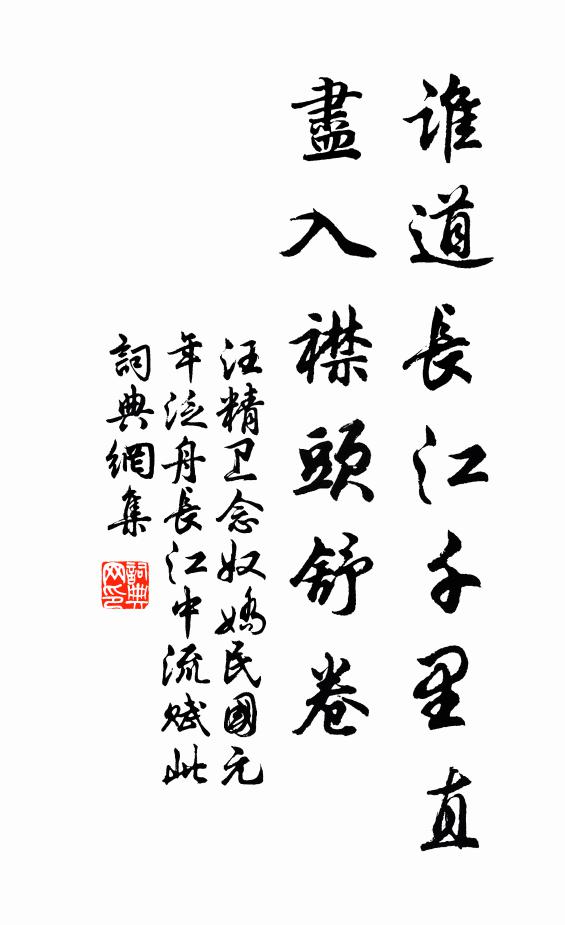 誰道長江千里直
盡入襟頭舒卷
汪精卫念奴嬌民國元
年泛舟長江中流賦此
詞典網集
詞典
网印